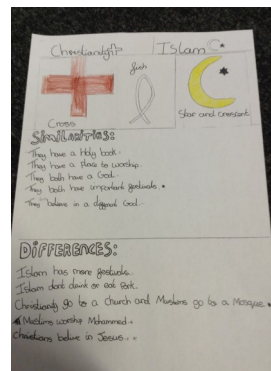 Christianity
Islam
fish
Cross
Star and crescent
Similarities:
They have a Holy book.
They have a Place to worship.
They both have a God.
They both have important festivals.
They believe in a different God.
Differences:
Islam has more festivals.
Islam dont drink or eat Pork.
Christianity go to a church and Muslims go to a Mosque.
Muslims worship Mohammed.
Christians believe in Jesus.